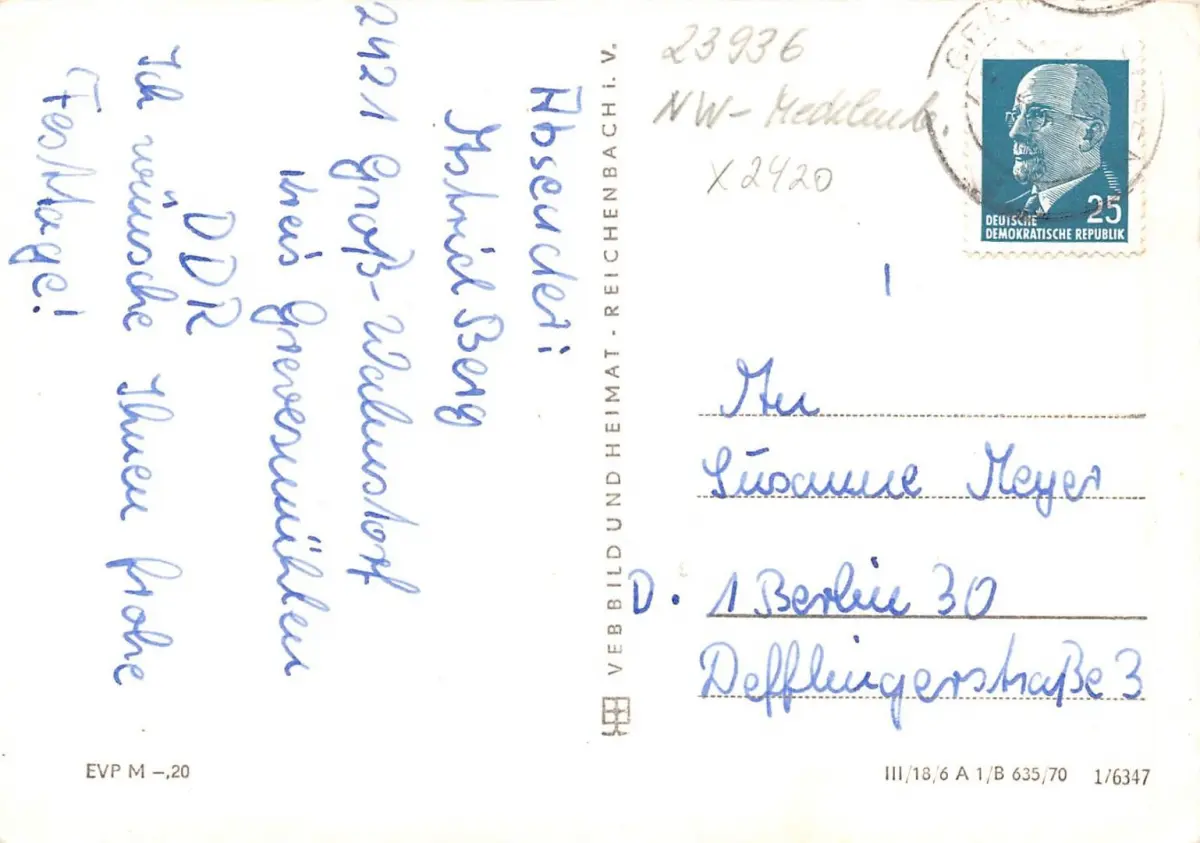 Absender:
Astrid Berg
2421 Groß-Walmstorf
Kreis Grevesmühlen
DDR
Ich wünsche Ihnen frohe
Festtage!
VEB BILD UND HEIMAT · REICHENBACH i. V.
23936
NW-Mecklenb.
X2420
DEUTSCHE
DEMOKRATISCHE REPUBLIK
25
An
Susanne Meyer
D. 1 Berlin 30
Defflingerstraße 3
EVP M –,20
III/18/6 A 1/B 635/70 1/6347